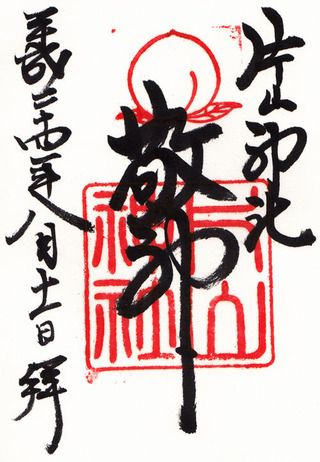 片山神社
敬神
平成二十四年八月十一日 拜
片山
神社